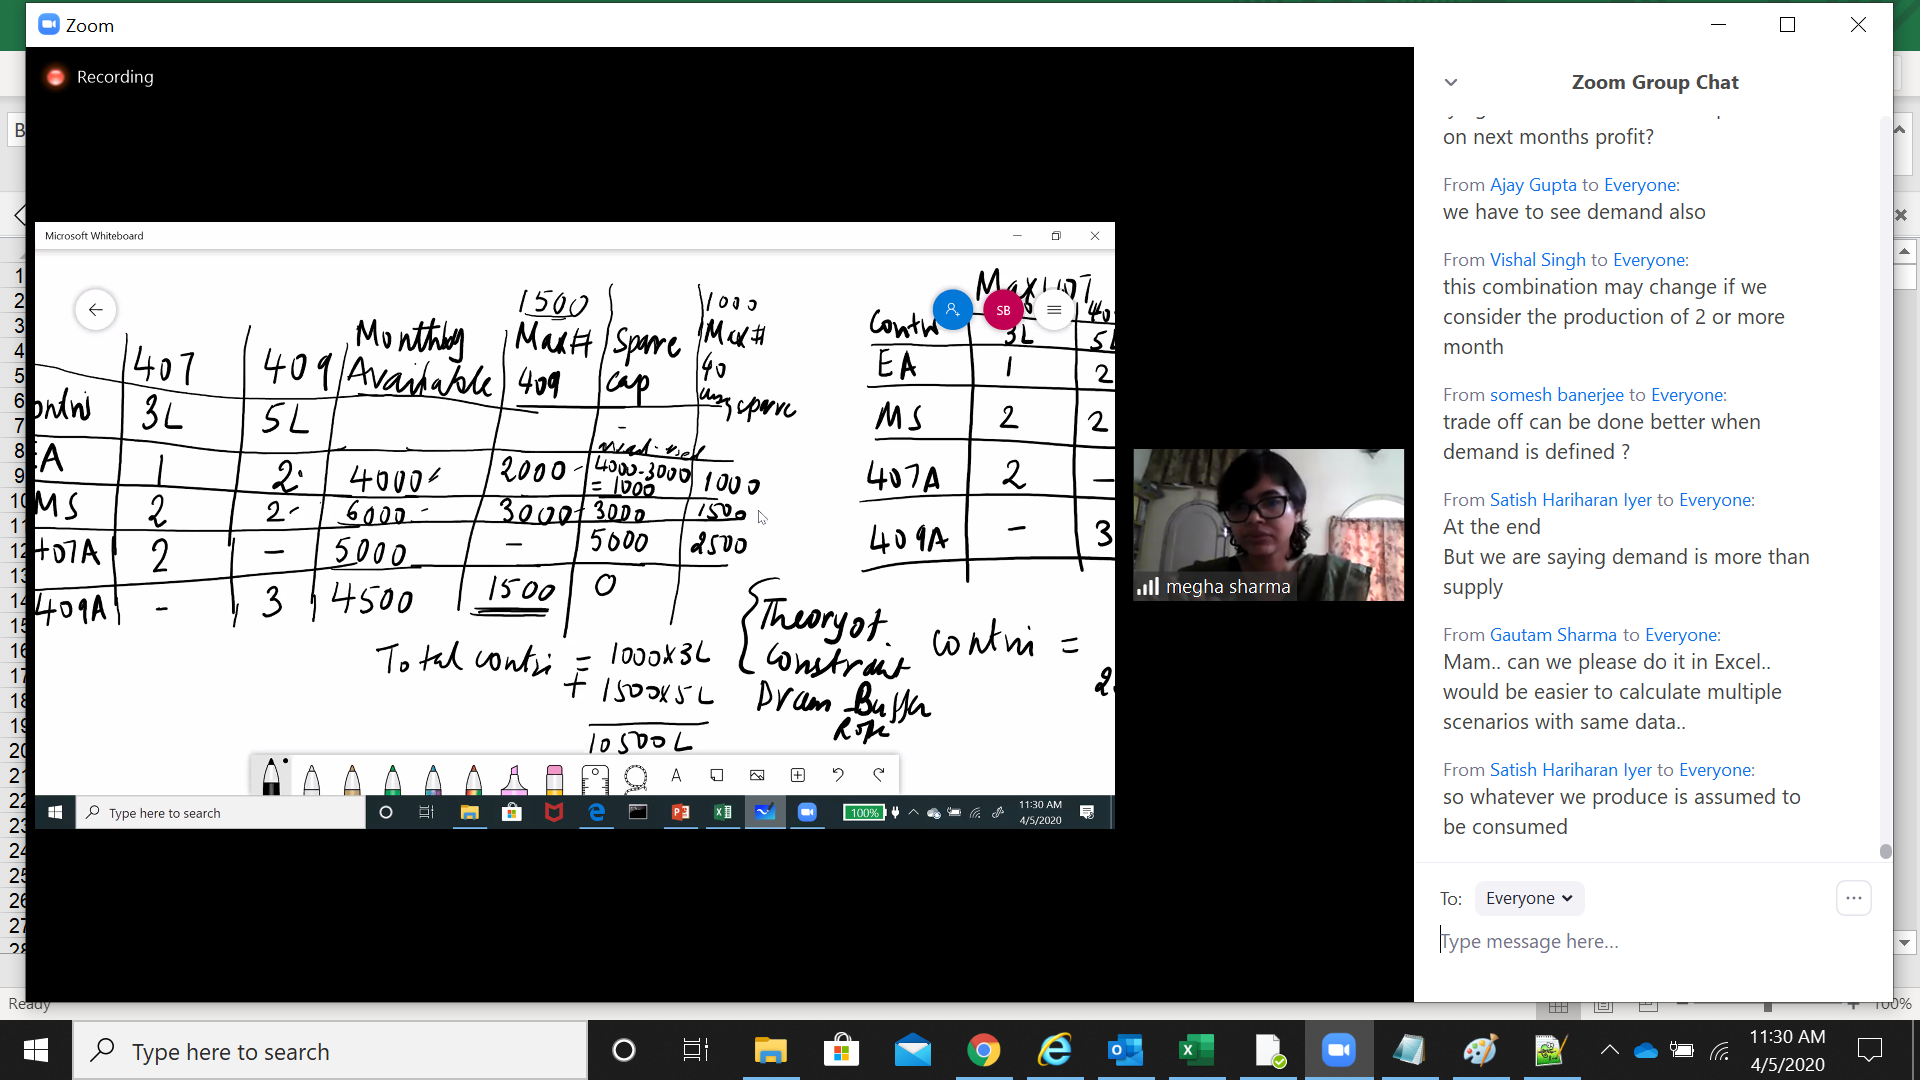 Zoom
Recording
Microsoft Whiteboard
1500
1000
Max 407
407
409
Monthly
Available
Max #
409
Spare
cap
Max #
40
using spare
Contri
3L
5L
ontri
3L
5L
EA
1
2
EA
1
2
4000
2000
4000-3000
= 1000
1000
MS
2
2
MS
2
2
6000
3000
3000
1500
407A
2
-
5000
-
5000
2500
407A
2
-
409A
-
3
4500
1500
0
409A
-
3
Total contri = 1000x3L
+ 1500x5L
10500L
Theory of
Constraint
Drum Buffer
Rope
contri =
2
SB
Type here to search
100%
11:30 AM
4/5/2020
megha sharma
Zoom Group Chat
on next months profit?
From Ajay Gupta to Everyone:
we have to see demand also
From Vishal Singh to Everyone:
this combination may change if we
consider the production of 2 or more
month
From somesh banerjee to Everyone:
trade off can be done better when
demand is defined ?
From Satish Hariharan Iyer to Everyone:
At the end
But we are saying demand is more than
supply
From Gautam Sharma to Everyone:
Mam.. can we please do it in Excel..
would be easier to calculate multiple
scenarios with same data..
From Satish Hariharan Iyer to Everyone:
so whatever we produce is assumed to
be consumed
To: Everyone
Type message here...
B
1
2
3
4
5
6
7
8
9
10
11
12
13
14
15
16
17
18
19
20
21
22
23
24
25
26
27
28
Ready
100%
Type here to search
11:30 AM
4/5/2020